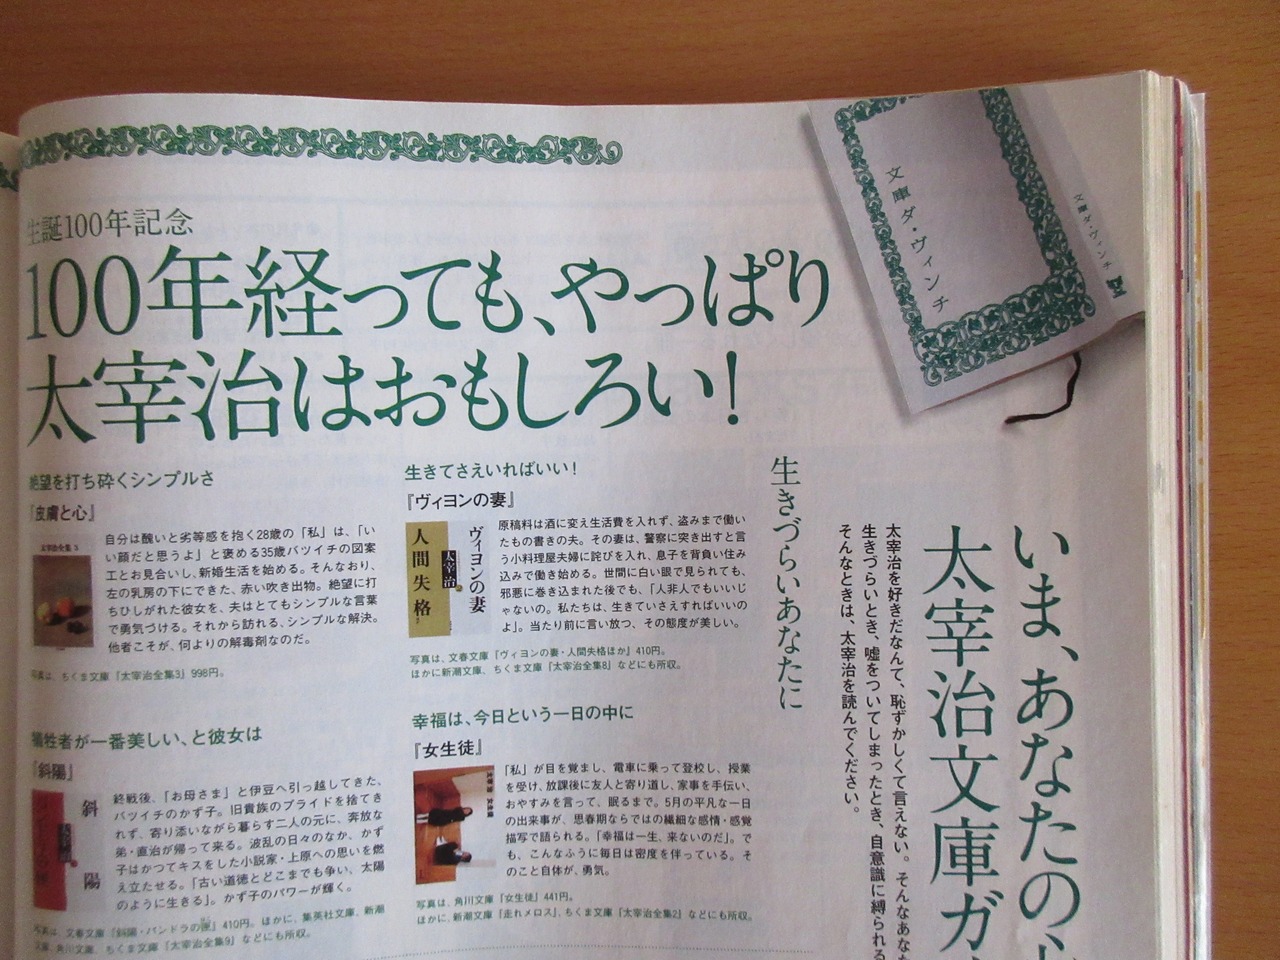 生誕100年記念
100年経っても、やっぱり
太宰治はおもしろい!
文庫ダ・ヴィンチ
文庫ダ・ヴィンチ
いま、あなたの
太宰治文庫ガ
太宰治を好きだなんて、恥ずかしくて言えない。そんなあなた
生きづらいとき、嘘をついてしまったとき、自意識に縛られる
そんなときは、太宰治を読んでください。
生きづらいあなたに
生きてさえいればいい!
『ヴィヨンの妻』
ヴィヨンの妻
太宰治
人間失格
原稿料は酒に変え生活費を入れず、盗みまで働い
たもの書きの夫。その妻は、警察に突き出すと言
う小料理屋夫婦に詫びを入れ、息子を背負い住み
込みで働き始める。世間に白い眼で見られても、
邪悪に巻き込まれた後でも、「人非人でもいいじ
ゃないの。私たちは、生きていさえすればいいの
よ」。当たり前に言い放つ、その態度が美しい。
写真は、文春文庫『ヴィヨンの妻・人間失格ほか』410円。
ほかに新潮文庫、ちくま文庫『太宰治全集8』などにも所収。
絶望を打ち砕くシンプルさ
『皮膚と心』
太宰治全集3
自分は醜いと劣等感を抱く28歳の「私」は、「い
い顔だと思うよ」と褒める35歳バツイチの図案
工とお見合いし、新婚生活を始める。そんなおり、
左の乳房の下にできた、赤い吹き出物。絶望に打
ちひしがれた彼女を、夫はとてもシンプルな言葉
で勇気づける。それから訪れる、シンプルな解決。
他者こそが、何よりの解毒剤なのだ。
写真は、ちくま文庫『太宰治全集3』998円。
幸福は、今日という一日の中に
『女生徒』
太宰治 女生徒
「私」が目を覚まし、電車に乗って登校し、授業
を受け、放課後に友人と寄り道し、家事を手伝い、
おやすみを言って、眠るまで。5月の平凡な一日
の出来事が、思春期ならではの繊細な感情・感覚
描写で語られる。「幸福は一生、来ないのだ」。で
も、こんなふうに毎日は密度を伴っている。そ
のこと自体が、勇気。
写真は、角川文庫『女生徒』441円。
ほかに、新潮文庫『走れメロス』、ちくま文庫『太宰治全集2』などにも所収。
犠牲者が一番美しい、と彼女は
『斜陽』
斜陽
終戦後、「お母さま」と伊豆へ引っ越してきた、
バツイチのかず子。旧貴族のプライドを捨てき
れず、寄り添いながら暮らす二人の元に、奔放な
弟・直治が帰って来る。波乱の日々のなか、かず
子はかつてキスをした小説家・上原への思いを燃
え立たせる。「古い道徳とどこまでも争い、太陽
のように生きる」。かず子のパワーが輝く。
写真は、文春文庫『斜陽・パンドラの匣』410円。ほかに、集英社文庫、新潮
文庫、角川文庫、ちくま文庫『太宰治全集9』などにも所収。